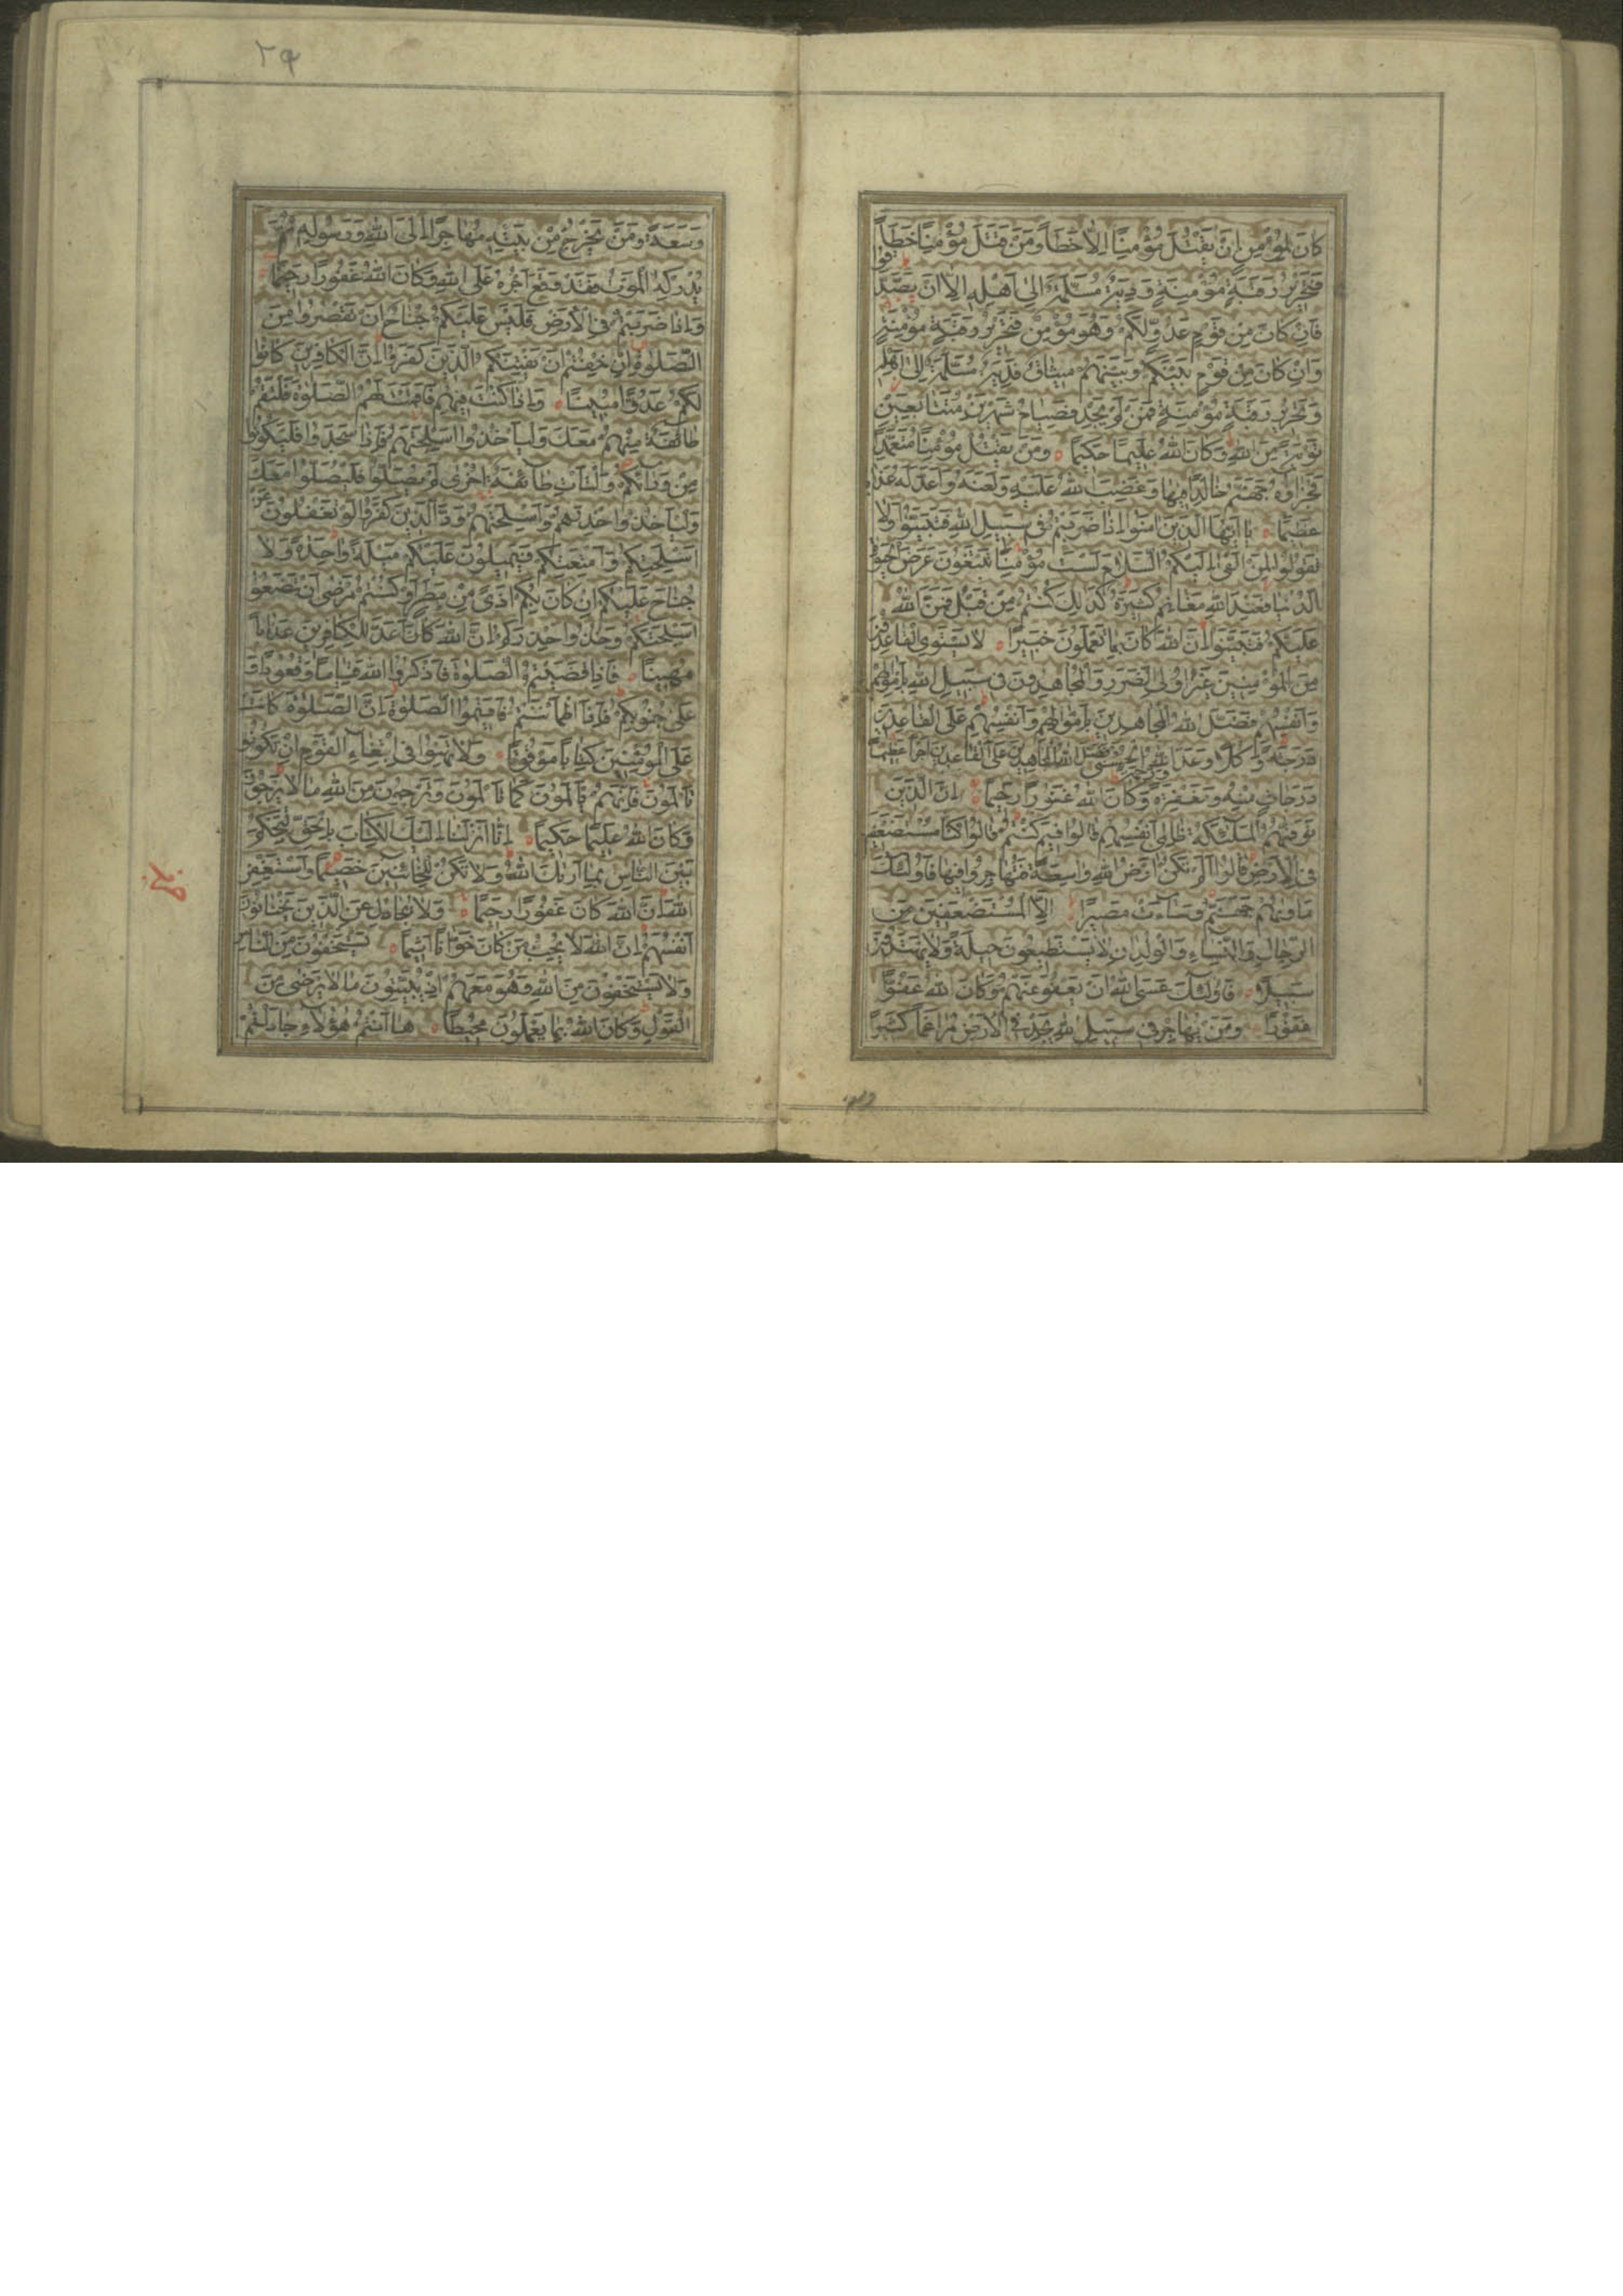 كَانَ لِمُؤْمِنٍ اَنْ يَقْتُلَ مُؤْمِنًا اِلَّا خَطَأً وَمَنْ قَتَلَ مُؤْمِنًا خَطَأً
فَتَحْرِيرُ رَقَبَةٍ مُؤْمِنَةٍ وَدِيَةٌ مُسَلَّمَةٌ اِلٰى اَهْلِهِ اِلَّا اَنْ يَصَّدَّقُوا
فَاِنْ كَانَ مِنْ قَوْمٍ عَدُوٍّ لَكُمْ وَهُوَ مُؤْمِنٌ فَتَحْرِيرُ رَقَبَةٍ مُؤْمِنَةٍ
وَاِنْ كَانَ مِنْ قَوْمٍ بَيْنَكُمْ وَبَيْنَهُمْ مِيثَاقٌ فَدِيَةٌ مُسَلَّمَةٌ اِلٰى اَهْلِهِ
وَتَحْرِيرُ رَقَبَةٍ مُؤْمِنَةٍ فَمَنْ لَمْ يَجِدْ فَصِيَامُ شَهْرَيْنِ مُتَتَابِعَيْنِ
تَوْبَةً مِنَ اللّٰهِ وَكَانَ اللّٰهُ عَلِيمًا حَكِيمًا وَمَنْ يَقْتُلْ مُؤْمِنًا مُتَعَمِّدًا
فَجَزَاؤُهُ جَهَنَّمُ خَالِدًا فِيهَا وَغَضِبَ اللّٰهُ عَلَيْهِ وَلَعَنَهُ وَاَعَدَّ لَهُ عَذَابًا
عَظِيمًا يَا اَيُّهَا الَّذِينَ اٰمَنُوا اِذَا ضَرَبْتُمْ فِى سَبِيلِ اللّٰهِ فَتَبَيَّنُوا وَلَا
تَقُولُوا لِمَنْ اَلْقٰى اِلَيْكُمُ السَّلَامَ لَسْتَ مُؤْمِنًا تَبْتَغُونَ عَرَضَ الْحَيٰوةِ
الدُّنْيَا فَعِنْدَ اللّٰهِ مَغَانِمُ كَثِيرَةٌ كَذٰلِكَ كُنْتُمْ مِنْ قَبْلُ فَمَنَّ اللّٰهُ
عَلَيْكُمْ فَتَبَيَّنُوا اِنَّ اللّٰهَ كَانَ بِمَا تَعْمَلُونَ خَبِيرًا لَا يَسْتَوِى الْقَاعِدُونَ
مِنَ الْمُؤْمِنِينَ غَيْرُ اُولِى الضَّرَرِ وَالْمُجَاهِدُونَ فِى سَبِيلِ اللّٰهِ بِاَمْوَالِهِمْ
وَاَنْفُسِهِمْ فَضَّلَ اللّٰهُ الْمُجَاهِدِينَ بِاَمْوَالِهِمْ وَاَنْفُسِهِمْ عَلَى الْقَاعِدِينَ
دَرَجَةً وَكُلًّا وَعَدَ اللّٰهُ الْحُسْنٰى وَفَضَّلَ اللّٰهُ الْمُجَاهِدِينَ عَلَى الْقَاعِدِينَ اَجْرًا عَظِيمًا
دَرَجَاتٍ مِنْهُ وَمَغْفِرَةً وَرَحْمَةً وَكَانَ اللّٰهُ غَفُورًا رَحِيمًا اِنَّ الَّذِينَ
تَوَفّٰيهُمُ الْمَلٰئِكَةُ ظَالِمِى اَنْفُسِهِمْ قَالُوا فِيمَ كُنْتُمْ قَالُوا كُنَّا مُسْتَضْعَفِينَ
فِى الْاَرْضِ قَالُوا اَلَمْ تَكُنْ اَرْضُ اللّٰهِ وَاسِعَةً فَتُهَاجِرُوا فِيهَا فَاُولٰئِكَ
مَاْوٰيهُمْ جَهَنَّمُ وَسَاءَتْ مَصِيرًا اِلَّا الْمُسْتَضْعَفِينَ مِنَ
الرِّجَالِ وَالنِّسَاءِ وَالْوِلْدَانِ لَا يَسْتَطِيعُونَ حِيلَةً وَلَا يَهْتَدُونَ
سَبِيلًا فَاُولٰئِكَ عَسَى اللّٰهُ اَنْ يَعْفُوَ عَنْهُمْ وَكَانَ اللّٰهُ عَفُوًّا
غَفُورًا وَمَنْ يُهَاجِرْ فِى سَبِيلِ اللّٰهِ يَجِدْ فِى الْاَرْضِ مُرَاغَمًا كَثِيرًا
٢٩
وَسَعَةً وَمَنْ يَخْرُجْ مِنْ بَيْتِهِ مُهَاجِرًا اِلَى اللّٰهِ وَرَسُولِهِ ثُمَّ
يُدْرِكْهُ الْمَوْتُ فَقَدْ وَقَعَ اَجْرُهُ عَلَى اللّٰهِ وَكَانَ اللّٰهُ غَفُورًا رَحِيمًا
وَاِذَا ضَرَبْتُمْ فِى الْاَرْضِ فَلَيْسَ عَلَيْكُمْ جُنَاحٌ اَنْ تَقْصُرُوا مِنَ
الصَّلٰوةِ اِنْ خِفْتُمْ اَنْ يَفْتِنَكُمُ الَّذِينَ كَفَرُوا اِنَّ الْكَافِرِينَ كَانُوا
لَكُمْ عَدُوًّا مُبِينًا وَاِذَا كُنْتَ فِيهِمْ فَاَقَمْتَ لَهُمُ الصَّلٰوةَ فَلْتَقُمْ
طَائِفَةٌ مِنْهُمْ مَعَكَ وَلْيَاْخُذُوا اَسْلِحَتَهُمْ فَاِذَا سَجَدُوا فَلْيَكُونُوا
مِنْ وَرَائِكُمْ وَلْتَاْتِ طَائِفَةٌ اُخْرٰى لَمْ يُصَلُّوا فَلْيُصَلُّوا مَعَكَ
وَلْيَاْخُذُوا حِذْرَهُمْ وَاَسْلِحَتَهُمْ وَدَّ الَّذِينَ كَفَرُوا لَوْ تَغْفُلُونَ عَنْ
اَسْلِحَتِكُمْ وَاَمْتِعَتِكُمْ فَيَمِيلُونَ عَلَيْكُمْ مَيْلَةً وَاحِدَةً وَلَا
جُنَاحَ عَلَيْكُمْ اِنْ كَانَ بِكُمْ اَذًى مِنْ مَطَرٍ اَوْ كُنْتُمْ مَرْضٰى اَنْ تَضَعُوا
اَسْلِحَتَكُمْ وَخُذُوا حِذْرَكُمْ اِنَّ اللّٰهَ كَانَ اَعَدَّ لِلْكَافِرِينَ عَذَابًا
مُهِينًا فَاِذَا قَضَيْتُمُ الصَّلٰوةَ فَاذْكُرُوا اللّٰهَ قِيَامًا وَقُعُودًا وَ
عَلٰى جُنُوبِكُمْ فَاِذَا اطْمَاْنَنْتُمْ فَاَقِيمُوا الصَّلٰوةَ اِنَّ الصَّلٰوةَ كَانَتْ
عَلَى الْمُؤْمِنِينَ كِتَابًا مَوْقُوتًا وَلَا تَهِنُوا فِى ابْتِغَاءِ الْقَوْمِ اِنْ تَكُونُوا
تَاْلَمُونَ فَاِنَّهُمْ يَاْلَمُونَ كَمَا تَاْلَمُونَ وَتَرْجُونَ مِنَ اللّٰهِ مَا لَا يَرْجُونَ
وَكَانَ اللّٰهُ عَلِيمًا حَكِيمًا اِنَّا اَنْزَلْنَا اِلَيْكَ الْكِتَابَ بِالْحَقِّ لِتَحْكُمَ
بَيْنَ النَّاسِ بِمَا اَرٰيكَ اللّٰهُ وَلَا تَكُنْ لِلْخَائِنِينَ خَصِيمًا وَاسْتَغْفِرِ
اللّٰهَ اِنَّ اللّٰهَ كَانَ غَفُورًا رَحِيمًا وَلَا تُجَادِلْ عَنِ الَّذِينَ يَخْتَانُونَ
اَنْفُسَهُمْ اِنَّ اللّٰهَ لَا يُحِبُّ مَنْ كَانَ خَوَّانًا اَثِيمًا يَسْتَخْفُونَ مِنَ النَّاسِ
وَلَا يَسْتَخْفُونَ مِنَ اللّٰهِ وَهُوَ مَعَهُمْ اِذْ يُبَيِّتُونَ مَا لَا يَرْضٰى مِنَ
الْقَوْلِ وَكَانَ اللّٰهُ بِمَا يَعْمَلُونَ مُحِيطًا هَا اَنْتُمْ هٰؤُلَاءِ جَادَلْتُمْ